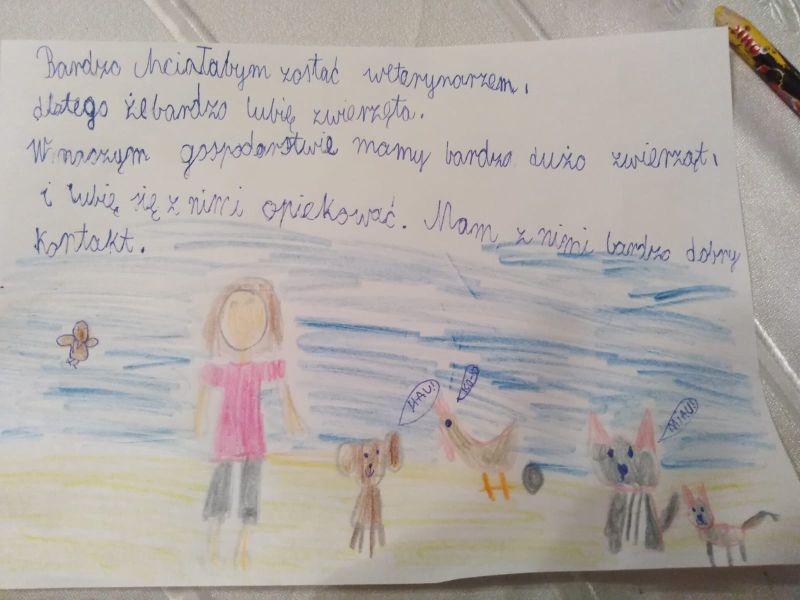 Bardzo chciałabym zostać weterynarzem,
dlatego żebardzo lubię zwierzęta.
W naszym gospodarstwie mamy bardzo dużo zwierząt,
i lubię się z nimi opiekować. Mam z nimi bardzo dobry
kontakt.
HAU!
MIAU!